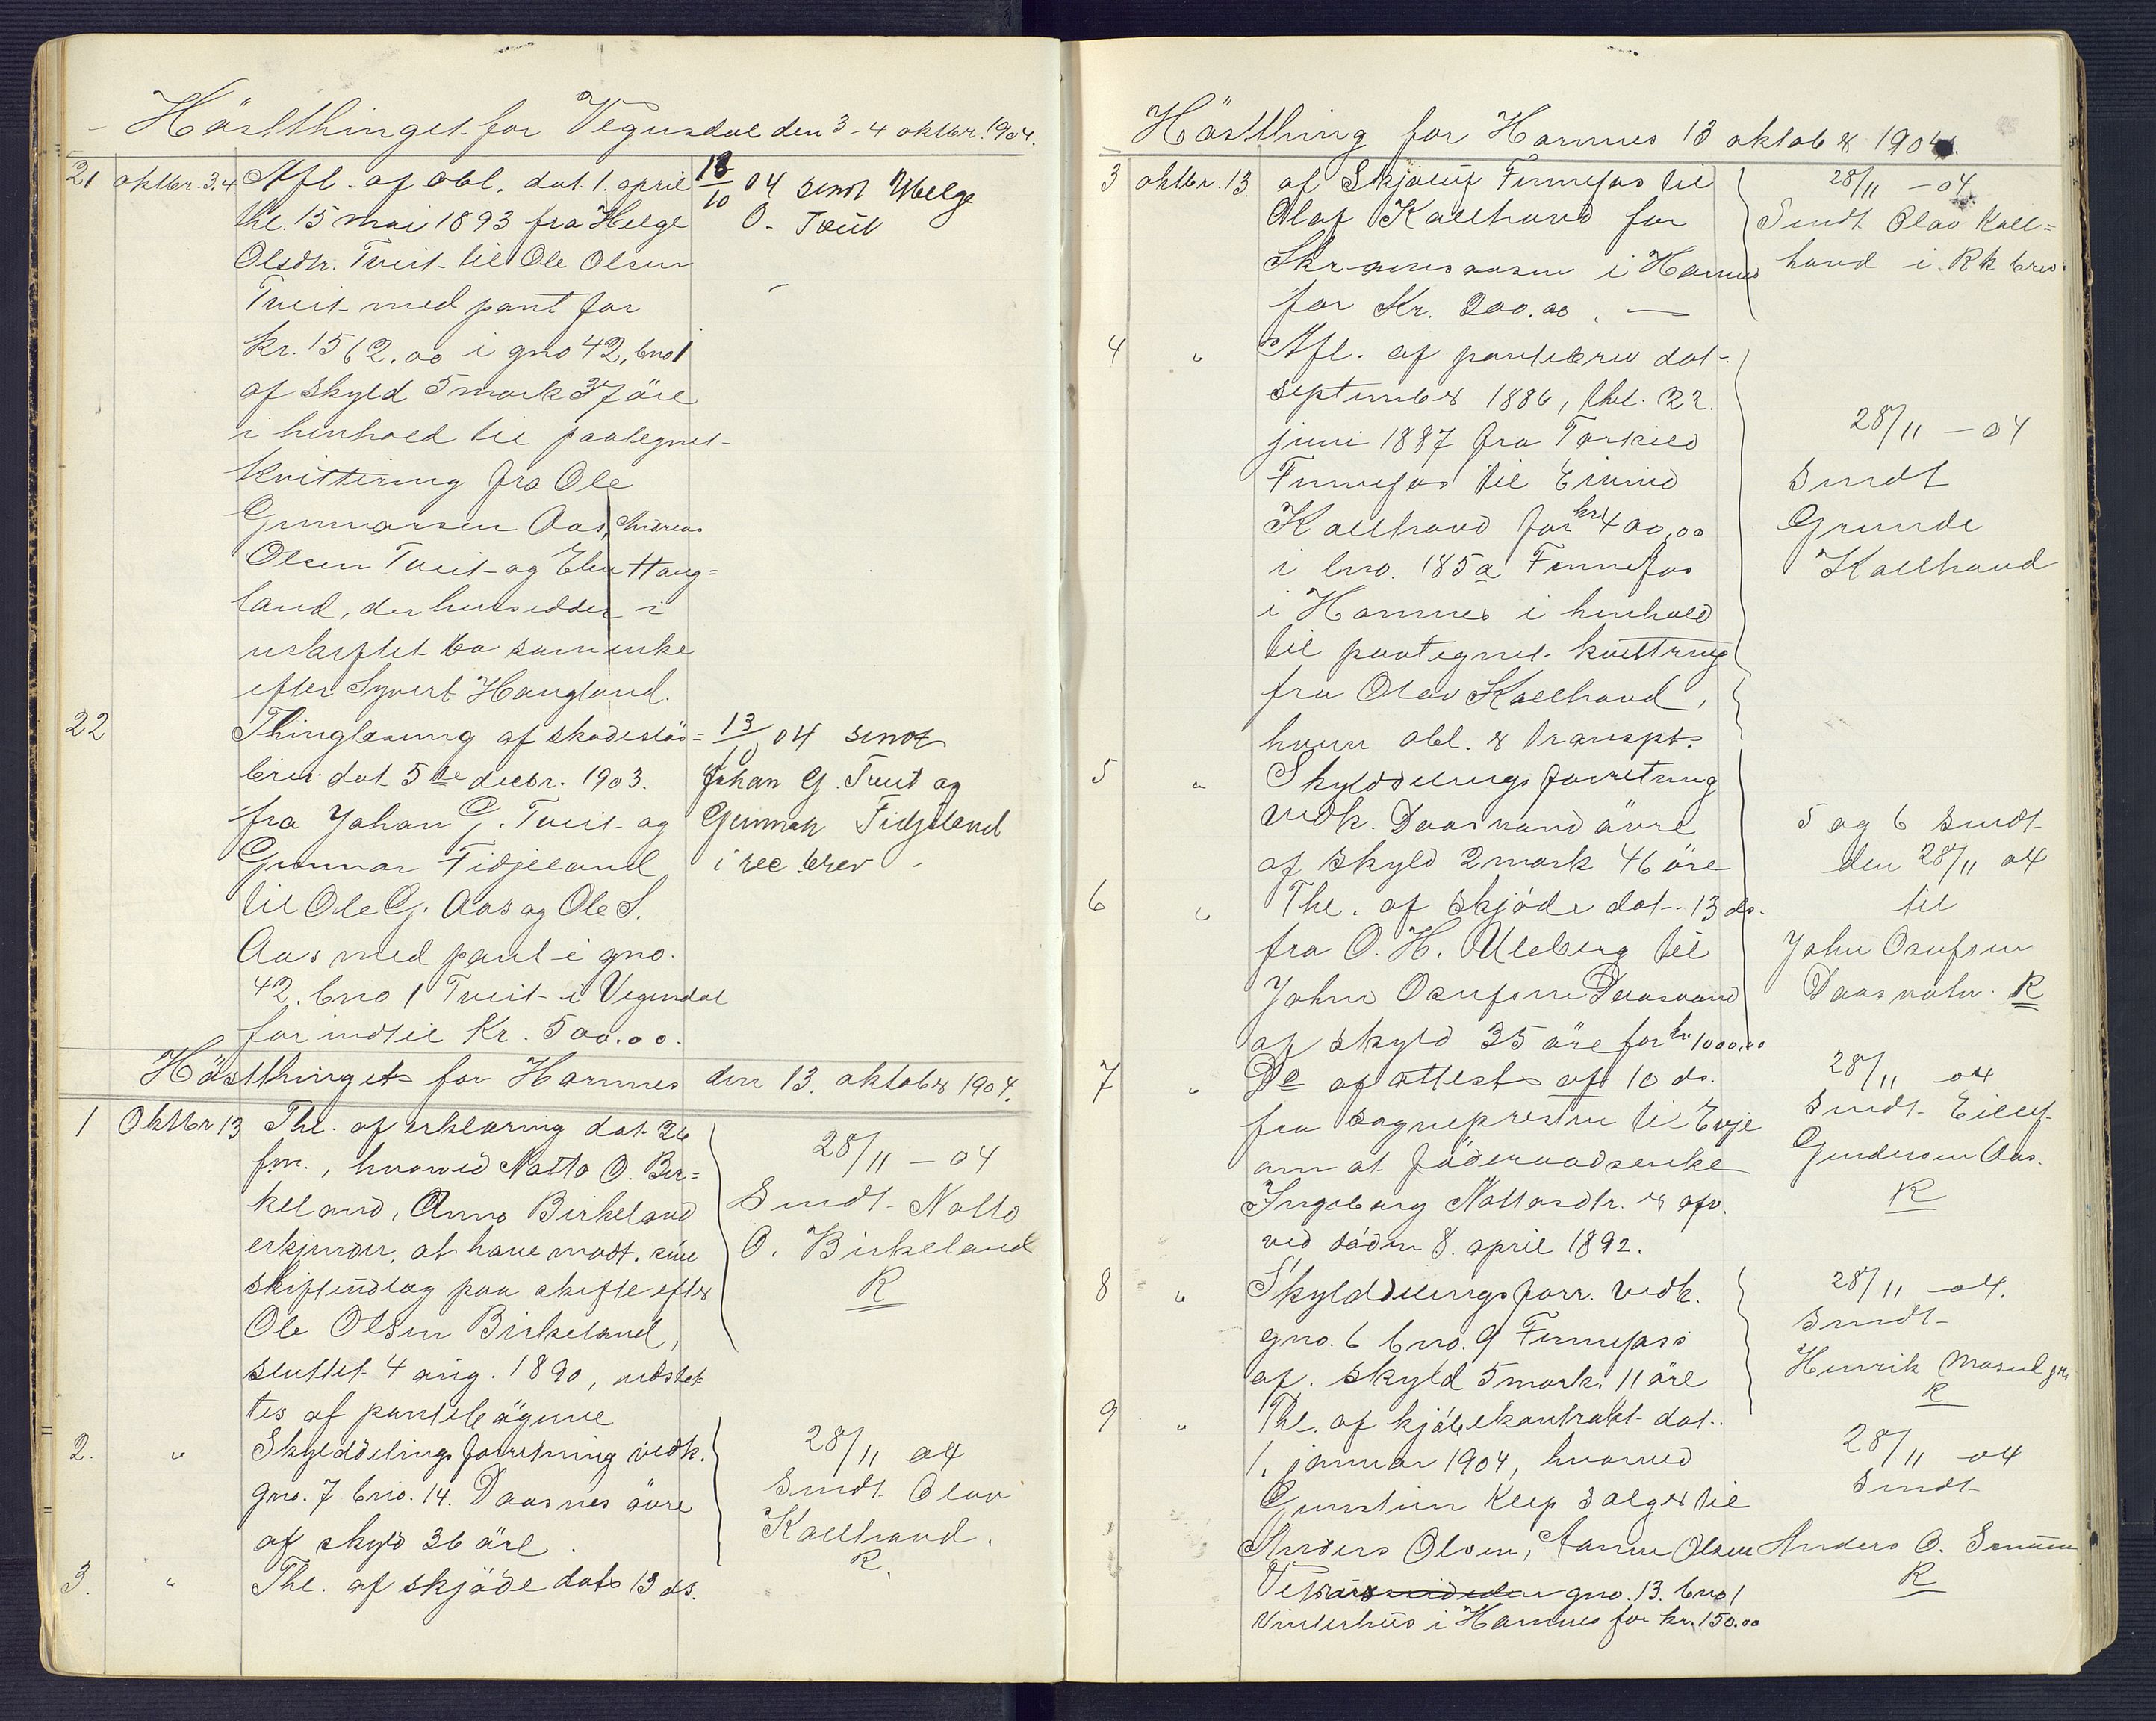 Hösttthinget for Vegusdal den 3-4 oktbr. 1904.
21 oktbr. 3.4 Afl. af obl. dat. 1. april
thl. 15 mai 1893 fra Helge
Olsdtr. Tveit til Ole Olsen
Tveit med pant for
kr. 1562.00 i gno 42, bno 1
af skyld 5 mark 37 öre
i henhold til paategnet
kvittering fra Ole
Gunnarsen Aas, Andreas
Olsen Tveit og Elen Haug=
land, der hensidder i
uskiftet bo som enke
efter Syvert Haugland.
13/10 04 sendt Helge
O. Tveit
22 Thinglæsning af skadeslös=
brev dat 5te decbr. 1903.
fra Johan G. Tveit og
Gunnar Fidjeland
til Ole G. Aas og Ole S.
Aas med pant i gno.
42. bno 1 Tveit i Vegusdal
for indtil Kr. 500.00.
13/10 04 sendt
Johan G. Tveit og
Gunnar Fidjeland
i rec. brev
Höstthinget for Hornnes den 13. oktober 1904.
1 Oktbr 13 Thl. af erklæring dat. 26
f.m., hvorved Notto O. Bir=
keland, Anne Birkeland
erkjender, at have modt. sine
skifteudlæg paa skifte efter
Ole Olsen Birkeland,
sluttet 4 aug. 1890, udslet
tes af pantebögerne
28/11 – 04
Sendt Notto
O. Birkeland
R
2. " Skylddelingsforretning vedk.
gno. 7 bno. 14. Daasnes övre
af skyld 36 öre.
28/11 04
Sendt Olav
Kallhovd.
R.
3. " Thl. af skjöde dat 13 ds.
Höstthing for Hornnes 13 oktober 1904.
3 oktbr. 13. af Skjöluf Fennefos til
Olaf Kallhovd for
i Hornnes
for Kr. 200.00. —
28/11 – 04
Sendt Olav Kall=
hovd i Rk brev.
4 " Afl. af pantebrev dat.
september 1886, thl. 22.
juni 1887 fra Torkild
Fennefos til Eivind
Kallhovd for kr 400,00
i lno. 185a Fennefos
i Hornnes i henhold
til paategnet kvittring
fra Olav Kallhovd,
hvem obl. er transpt.
28/11 – 04
Sendt
Grunde
Kallhovd
5 " Skylddelingsforretning
vedk. Daasvand övre
af skyld 2 mark 46 öre
6 " Thl. af skjöde dat. 13 ds.
fra O. H. Uleberg til
John Osufsen Daasvand
af skyld 35 öre for kr. 1000.00
5 og 6 sendt
den 28/11 04
til
John Osufsen
Daasvatn. R
7 " Do af attest af 10 ds.
fra sognepresten til Evje
om at föderaadsenke
Ingeborg Nottosdtr. er afg.
ved döden 8. april 1892.
28/11 04
Sendt Eiluf
Gundersen Aas.
R
8 " Skylddelingsforr. vedk.
gno. 6 bno. 9 Fennefoss
af. skyld 5 mark. 11 öre
28/11 04.
Sendt
Henrik Mosvold
R
9 " Thl. af kjöbekontrakt dat.
1. januar 1904, hvorved
Gunstein Keep sælger til
Anders Olsen, Olsen
gno. 13. bno 1
Vinterhus i Hornnes for kr. 150.00
28/11 04
Sendt
Anders O.
R